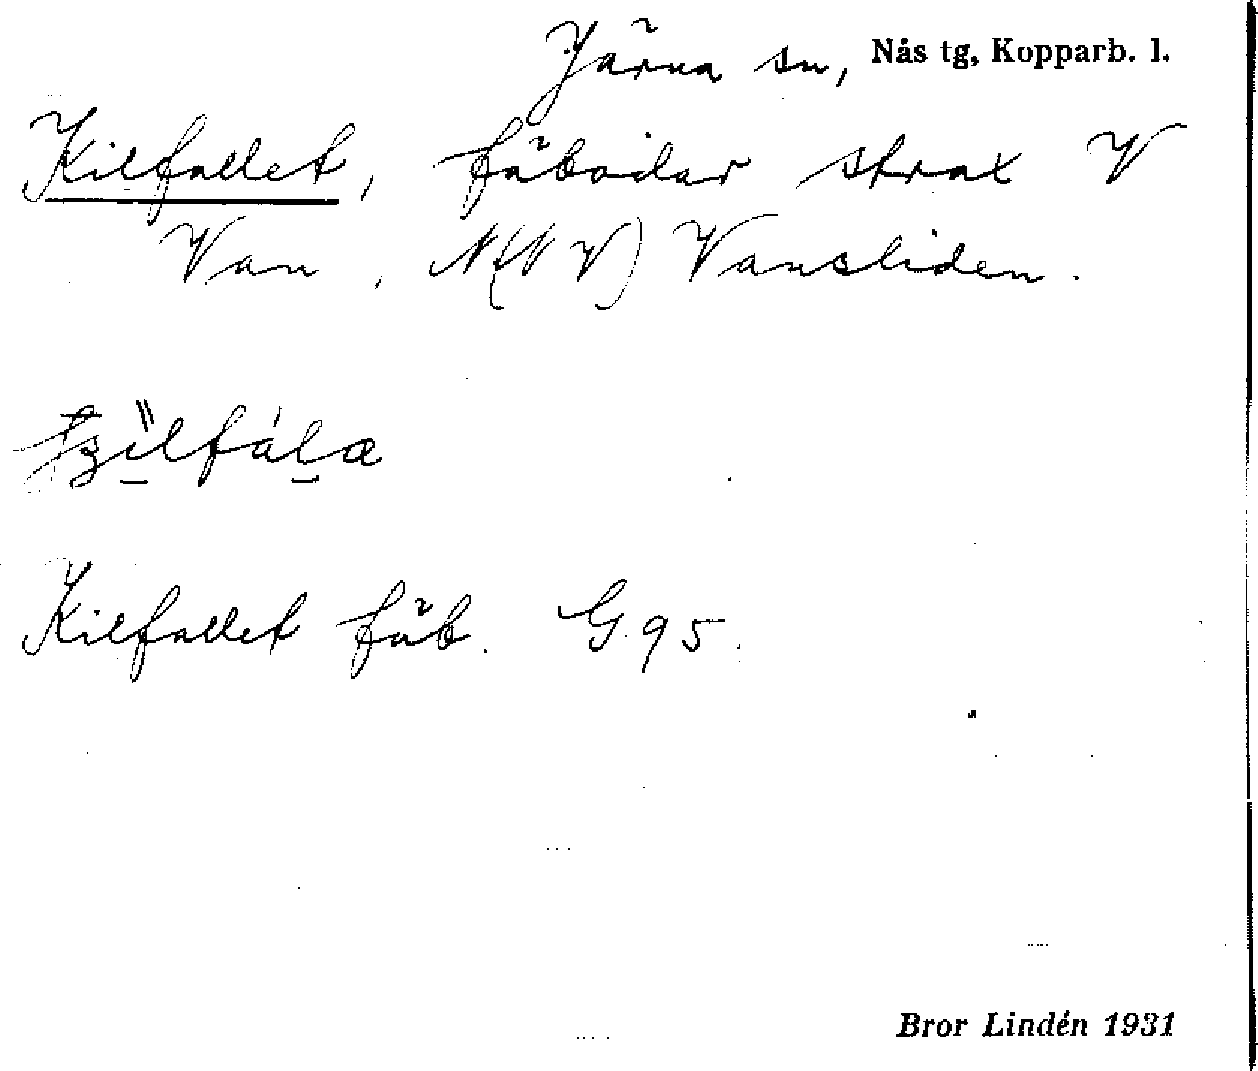 Järna sn, Nås tg, Kopparb. l.
Kilfallet, fäbodar strax V
Van, N(NV) Vansliden.
Kilfallet fäb. G. 95.
Bror Lindén 1931